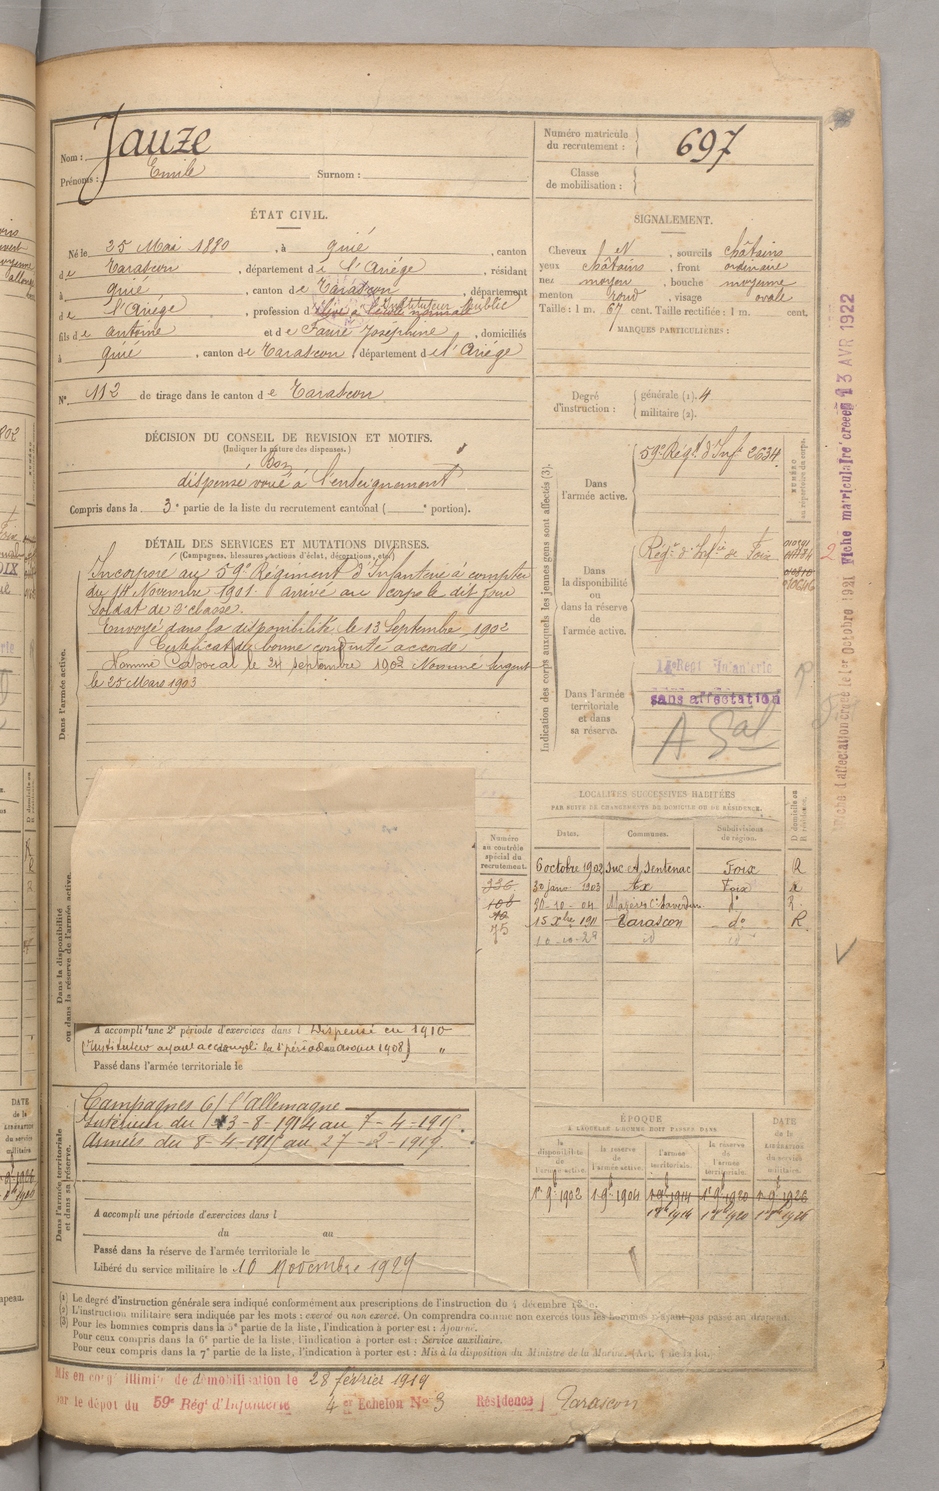 Nom : Jauze
Prénoms : Emile Surnom :
Numéro matricule du recrutement : 697
Classe de mobilisation :
ÉTAT CIVIL.
Né le 25 Mai 1880, à Quié, canton
de Tarascon, département de l'Ariége, résidant
à Quié, canton de Tarascon, département
de l'Ariége, profession d'élève à l'école normale Instituteur Public
fils de Antoine et de Faure Joséphine, domiciliés
à Quié, canton de Tarascon, département de l'Ariége
N° 112 de tirage dans le canton de Tarascon
DÉCISION DU CONSEIL DE REVISION ET MOTIFS.
(Indiquer la nature des dispenses.)
Bon
dispense voué à l'enseignement
Compris dans la 3e partie de la liste du recrutement cantonal ( e portion).
DÉTAIL DES SERVICES ET MUTATIONS DIVERSES.
(Campagnes, blessures, actions d'éclat, décorations, etc.)
Dans l'armée active.
Incorporé au 59e Régiment d'Infanterie à compter
du 14 Novembre 1901. arrivé au corps le dit jour
soldat de 2e classe.
Envoyé dans la disponibilité le 13 Septembre 1902
Certificat de bonne conduite accordé
Nommé Caporal le 24 septembre 1902 Nommé Sergent
le 25 Mars 1903
Dans la disponibilité ou dans la réserve de l'armée active.
A accompli une 2e période d'exercices dans l Dispensé en 1910
(Instituteur ayant accompli la 1e période au cours 1908)
Passé dans l'armée territoriale le
Dans l'armée territoriale et dans sa réserve.
Campagnes C/ l'allemagne
Intérieur du 13-8-1914 au 7-4-1915.
Armées du 8-4-1915 au 27-2-1919.
A accompli une période d'exercices dans l
du au
Passé dans la réserve de l'armée territoriale le
Libéré du service militaire le 10 Novembre 1929
SIGNALEMENT.
Cheveux et sourcils châtains
yeux châtains, front ordinaire
nez moyen, bouche moyenne
menton rond, visage ovale
Taille : 1 m. 67 cent. Taille rectifiée : 1 m. cent.
MARQUES PARTICULIÈRES :
Degré d'instruction : générale (1). 4
militaire (2).
Indication des corps auxquels les jeunes gens sont affectés (3).
NUMÉRO au répertoire du corps.
Dans l'armée active. 59e Régt d'Infie 2634
Dans la disponibilité ou dans la réserve de l'armée active. Régt d'Infie de Foix
Dans l'armée territoriale et dans sa réserve.
Regt Infanterie
sans affectation
A Sal
LOCALITÉS SUCCESSIVES HABITÉES
PAR SUITE DE CHANGEMENTS DE DOMICILE OU DE RÉSIDENCE.
D domicile ou R résidence.
Numéro au contrôle spécial du recrutement.
Dates. Communes. Subdivisions de région.
336 6 octobre 1902 Suc et Sentenac Foix R
106 30 janv 1903 Ax Foix R
20-10-04 Mazères Con Saverdun do R
75 15 Xbre 1911 Tarascon do R
id id
ÉPOQUE
A LAQUELLE L'HOMME DOIT PASSER DANS
DATE de la LIBÉRATION du service militaire.
la disponibilité de l'armée active. la réserve de l'armée active. l'armée territoriale. la réserve de l'armée territoriale.
1er 9bre 1902 1er 9bre 1904 1er 9bre 1914 1er 9bre 1920 1er 9bre 1926
(1) Le degré d'instruction générale sera indiqué conformément aux prescriptions de l'instruction du 4 décembre
(2) L'instruction militaire sera indiquée par les mots : exercé ou non exercé. On comprendra comme non exercés tous les hommes n'ayant pas passé au drapeau.
(3) Pour les hommes compris dans la 5e partie de la liste, l'indication à porter est : Ajourné.
Pour ceux compris dans la 6e partie de la liste, l'indication à porter est : Service auxiliaire.
Pour ceux compris dans la 7e partie de la liste, l'indication à porter est : Mis à la disposition du Ministre de la Marine. (Art. 4 de la loi.
Mis en congé illimité de démobilisation le 28 février 1919
par le dépôt du 59e Régt d'Infanterie 4e Echelon No 3 Résidence Tarascon
Fiche d'affectation créée le 1er Octobre 1921 Fiche matriculaire créée 13 AVR 1922